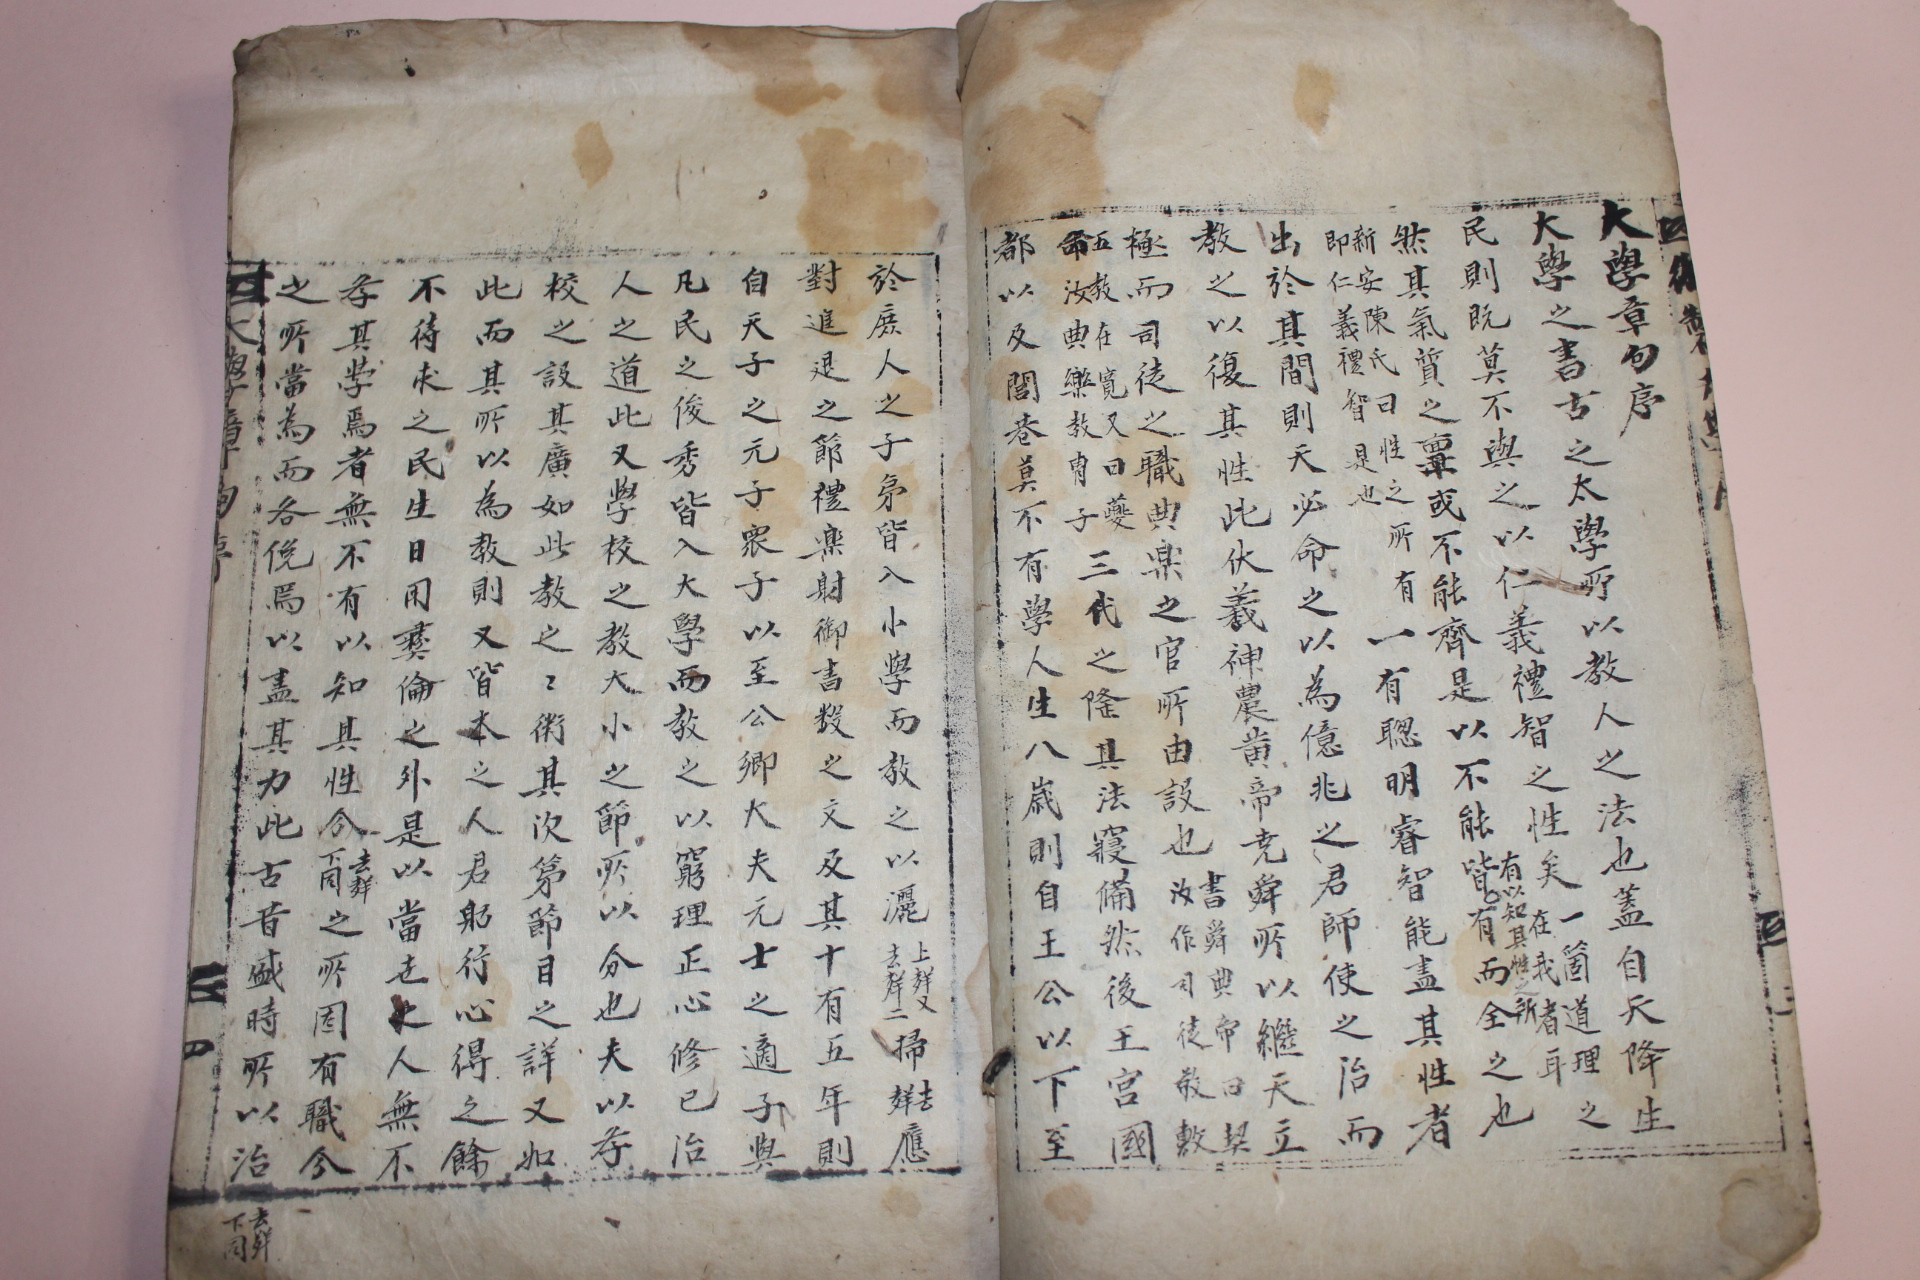 大學章句序
大學之書古之太學所以教人之法也蓋自天降生
民則旣莫不與之以仁義禮智之性矣一箇道理之在我者耳
然其氣質之稟或不能齊是以不能皆有以知其性之所有而全之也
新安陳氏曰性之所有即仁義禮智是也一有聰明睿智能盡其性者
出於其間則天必命之以為億兆之君師使之治而
教之以復其性此伏羲神農黃帝堯舜所以繼天立
極而司徒之職典樂之官所由設也書舜典帝曰契汝作司徒敬敷
五教在寬又曰夔命汝典樂教冑子三代之隆其法寖備然後王宮國
都以及閭巷莫不有學人生八歲則自王公以下至
於庶人之子弟皆入小學而教之以灑上聲又去聲二掃去聲應
對進退之節禮樂射御書數之文及其十有五年則
自天子之元子衆子以至公卿大夫元士之適子與
凡民之俊秀皆入大學而教之以窮理正心修己治
人之道此又學校之教大小之節所以分也夫以
校之設其廣如此教之之術其次第節目之詳又如
此而其所以為教則又皆本之人君躬行心得之餘
不待求之民生日用彝倫之外是以當世之人無不
學其學焉者無不有以知其性分去聲下同之所固有職分
之所當為而各俛焉以盡其力此古昔盛時所以治
去聲下同
大學章句序